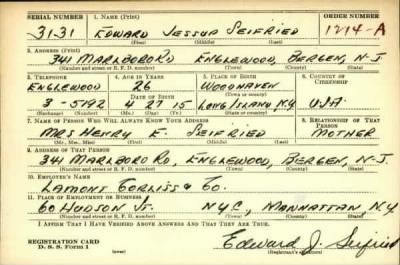 SERIAL NUMBER 1. NAME (Print) ORDER NUMBER
3131 EDWARD JESSUP SEIFRIED 1714-A
(First) (Middle) (Last)
2. ADDRESS (Print)
341 MARLBORO RD ENGLEWOOD, BERGEN, N-J.
(Number and street or R. F. D. number) (Town) (County) (State)
3. TELEPHONE 4. AGE IN YEARS 5. PLACE OF BIRTH 6. COUNTRY OF CITIZENSHIP
ENGLEWOOD 26 WOODHAVEN
DATE OF BIRTH (Town or county)
3-5792 4 27 15 LONG ISLAND N.Y. USA.
(Exchange) (Number) (Mo.) (Day) (Yr.) (State or country)
7. NAME OF PERSON WHO WILL ALWAYS KNOW YOUR ADDRESS 8. RELATIONSHIP OF THAT PERSON
MRS HENRY E. SEIFRIED MOTHER
(Mr., Mrs., Miss) (First) (Middle) (Last)
9. ADDRESS OF THAT PERSON
341 MARLBORO RD, ENGLEWOOD, BERGEN, N-J.
(Number and street or R. F. D. number) (Town) (County) (State)
10. EMPLOYER'S NAME
LAMONT CORLISS & CO.
11. PLACE OF EMPLOYMENT OR BUSINESS
60 HUDSON ST. NYC, MANHATTAN N.Y.
(Number and street or R. F. D. number) (Town) (County) (State)
I AFFIRM THAT I HAVE VERIFIED ABOVE ANSWERS AND THAT THEY ARE TRUE.
REGISTRATION CARD
D. S. S. Form 1 (over) Edward J. Seifried
(Registrant's signature)